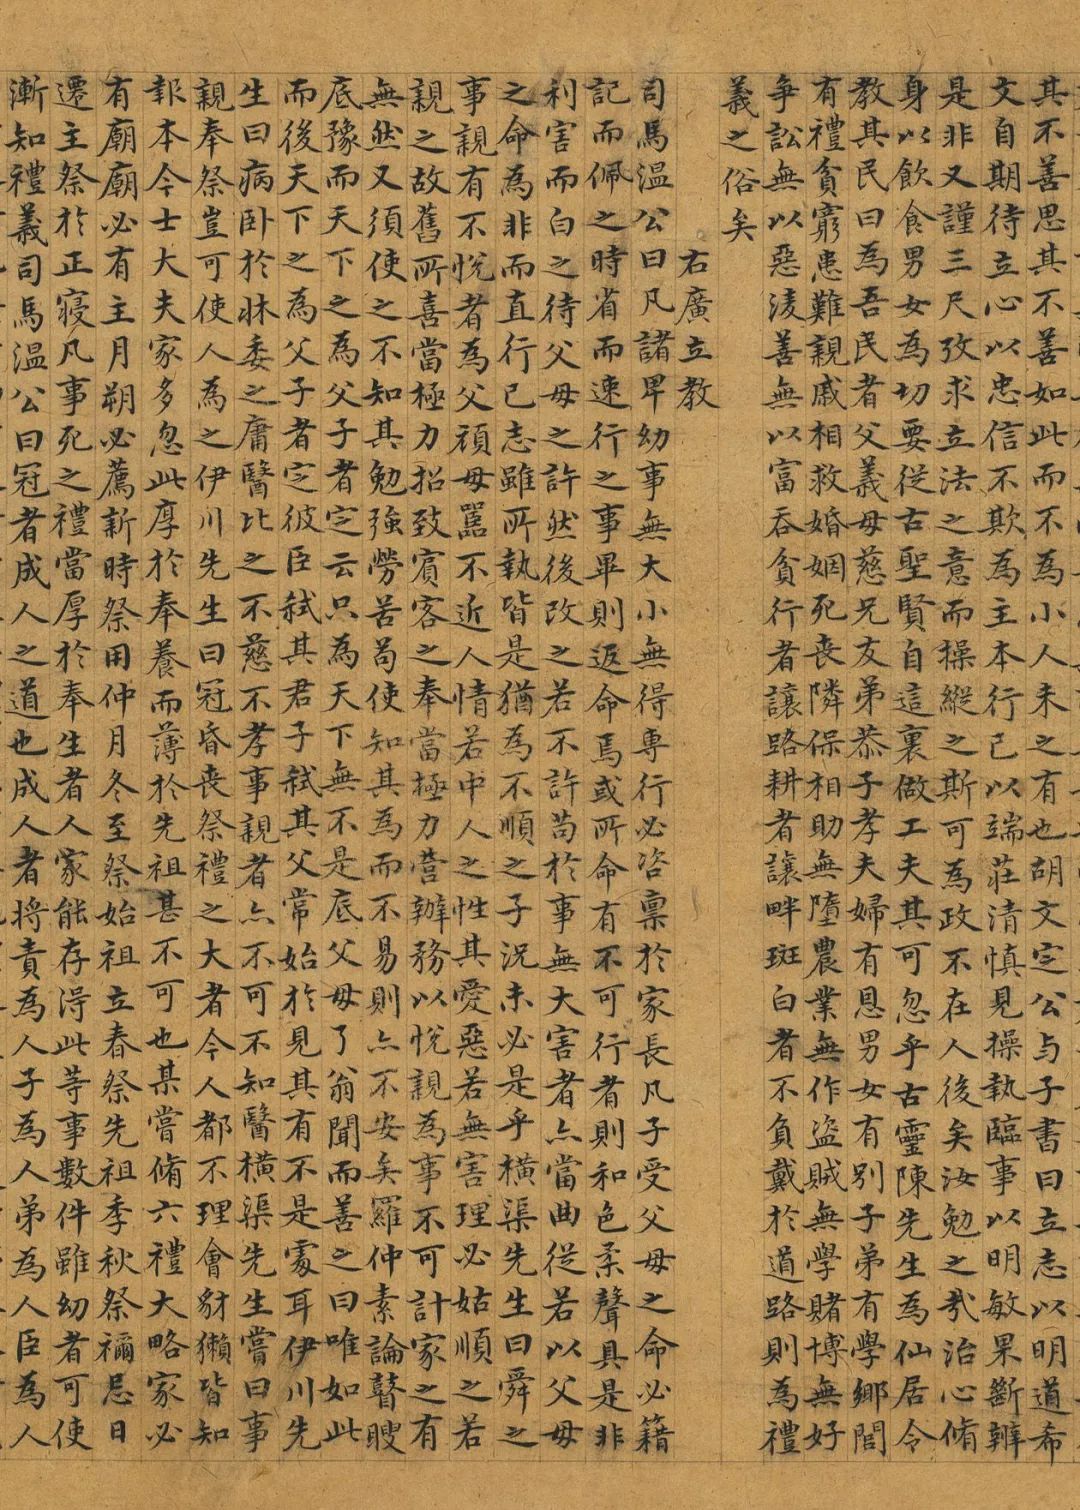 其不善思其不善如此而不為小人未之有也胡文定公与子書曰立志以明道希
文自期待立心以忠信不欺為主本行己以端莊清慎見操執臨事以明敏果斷辨
是非又謹三尺攷求立法之意而操縱之斯可為政不在人後矣汝勉之㢤治心脩
身以飲食男女為切要從古聖賢自這裏做工夫其可忽乎古靈陳先生為仙居令
教其民曰為吾民者父義母慈兄友弟恭子孝夫婦有恩男女有別子弟有學鄉閭
有禮貧窮患難親戚相救婚姻死喪隣保相助無墮農業無作盜賊無學賭博無好
爭訟無以惡淩善無以富吞貧行者讓路耕者讓畔斑白者不負戴於道路則為禮
義之俗矣
右廣立教
司馬溫公曰凡諸卑幼事無大小無得專行必咨稟於家長凡子受父母之命必籍
記而佩之時省而速行之事畢則返命焉或所命有不可行者則和色柔聲具是非
利害而白之待父母之許然後改之若不許苟於事無大害者亦當曲從若以父母
之命為非而直行己志雖所執皆是猶為不順之子況未必是乎橫渠先生曰舜之
事親有不悅者為父頑母嚚不近人情若中人之性其愛惡若無害理必姑順之若
親之故舊所喜當極力招致賓客之奉當極力營辦務以悅親為事不可計家之有
無然又須使之不知其勉強勞苦苟使知其為而不易則亦不安矣羅仲素論瞽瞍
底豫而天下之為父子者定云只為天下無不是底父母了翁聞而善之曰唯如此
而後天下之為父子者定彼臣弒其君子弒其父常始於見其有不是處耳伊川先
生曰病臥於牀委之庸醫比之不慈不孝事親者亦不可不知醫橫渠先生嘗曰事
親奉祭豈可使人為之伊川先生曰冠昏喪祭禮之大者今人都不理會豺獺皆知
報本今士大夫家多忽此厚於奉養而薄於先祖甚不可也某嘗脩六禮大略家必
有廟廟必有主月朔必薦新時祭用仲月冬至祭始祖立春祭先祖季秋祭禰忌日
遷主祭於正寢凡事死之禮當厚於奉生者人家能存得此等事數件雖幼者可使
漸知禮義司馬溫公曰冠者成人之道也成人者將責為人子為人弟為人臣為人